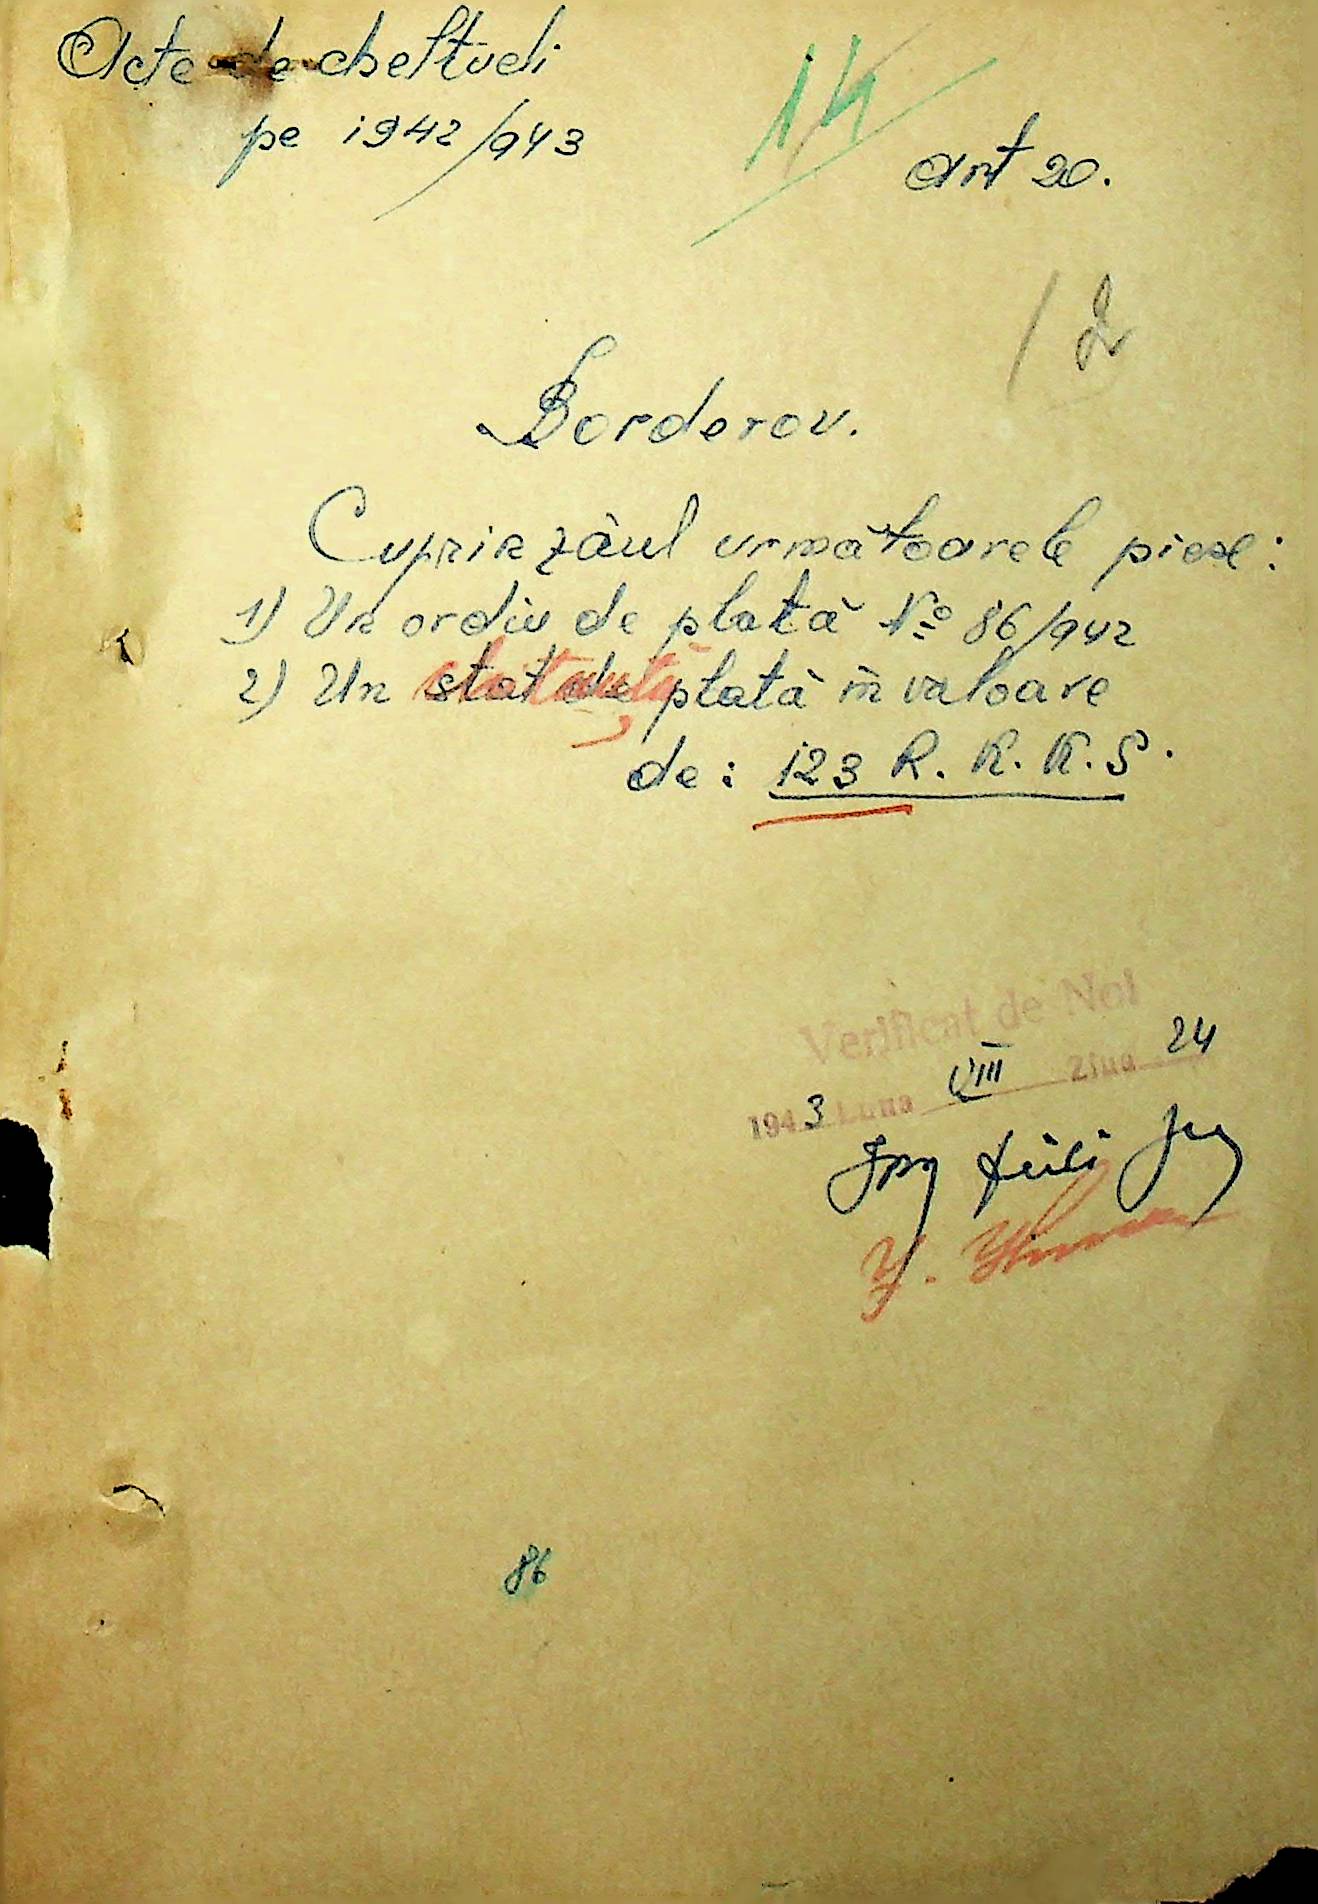 Acte de cheltueli
pe 1942/943
14
Art 20.
Borderou.
Cuprinzând următoarele piese:
1) Un ordin de plată No 86/942
2) Un stat de plată în valoare
de: 123 R. K. K. S.
Verificat de Noi
1943 Luna VIII Ziua 24
86